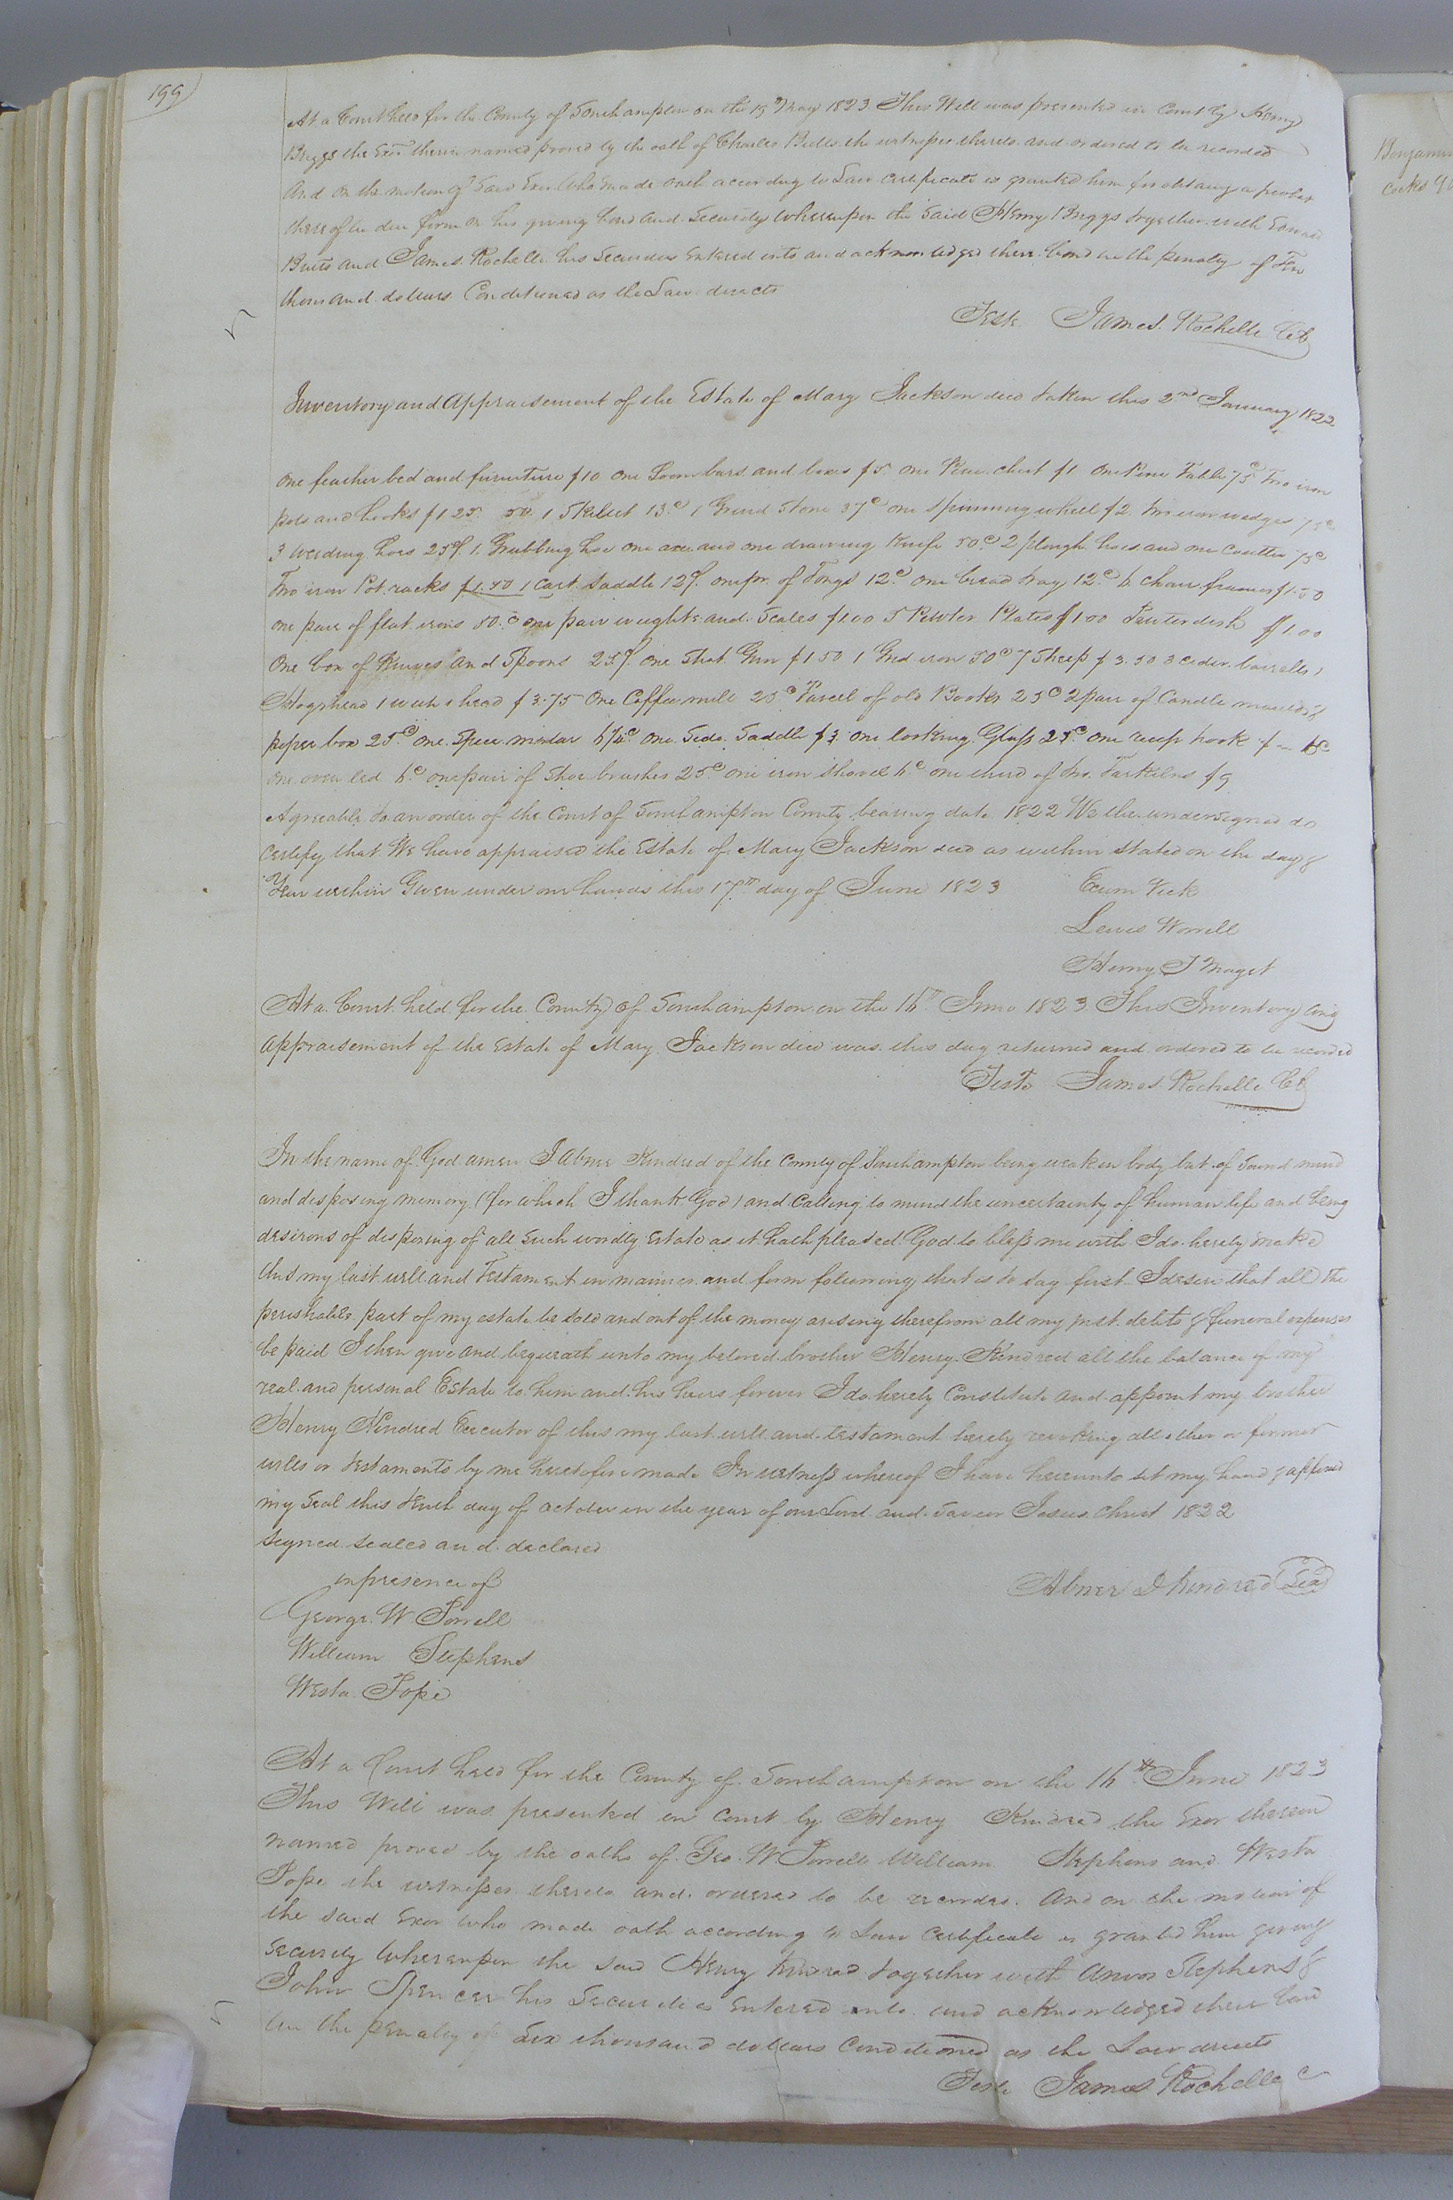 199
At a Court held for the County of Southampton on the 19th May 1823 This Will was presented in Court by Henry
Briggs the Exor therein named proved by the oath of Charles Butts the witness thereto and ordered to be recorded
And on the motion of said Exor who made oath according to Law certificate is granted him for obtaing a probat
thereof in due form on his giving bond and Security whereupon the Said Henry Briggs together with Edward
Butts and James Rochelle his Securities Entered into and acknowledged their bond in the penalty of
thousand dollars Conditioned as the Law directs
Teste James Rochelle CC
Inventory and Appraisement of the Estate of Mary Jackson decd taken this 2nd January 1822
One feather bed and furniture $10 one Loom bars and boxes $5 one Pine chest $1 One Pine Table 75c Two iron
pots and hooks $1 25 50 1 Skillet 13c 1 Grind Stone 37c one Spinning wheel $2 two iron wedges 75c
3 weeding hoes 25c 1 Grubbing hoe one axe and one drawing Knife 50c 2 plough hoes and one Coulter 75c
Two iron Pot racks $1.50 1 Cart Saddle 12c one pr. of Tongs 12c one bread tray 12c 6 Chair frames $1.50
One pair of flat irons 50c one pair weights and Scales $1 00 5 Pewter Plates $1 00 Peuter dish $1.00
One box of Knives and Spoons 25c one Shot Gun $1 50 1 Grid iron 50c 7 Sheep $3.50 3 cedar barrells 1
Hogshead 1 with 1 head $3.75 One Coffee mill 25c Parcel of old Books 25c 2 pair of Candle moulds &
peper box 25c one Spice mortar 6¼c one Side Saddle $3 one looking Glass 25c one reep hook $ - 6c
one oven led 6c one pair of Shoe brushes 25c one iron Shovel 6c one third of two Tarkilns $9
Agreeable to an order of the Court of Southampton County bearing date 1822 We the undersigned do
certify that We have appraised the Estate of Mary Jackson decd as within Stated on the day &
Year within Given under our hands this 17th day of June 1823 Exum Vick
Lewis Worrell
Henry J Maget
At a Court held for the County of Southampton on the 16th June 1823 This Inventory and
appraisement of the Estate of Mary Jackson decd was this day returned and ordered to be recorded
Teste James Rochelle CC
In the name of God amen I Abner Kindred of the County of Southampton being weak in body but of Sound mind
and disposing memory (for which I thank God) and Calling to mind the uncertainty of human life and being
desirous of disposing of all such wordly Estate as it hath pleased God to bless me with I do hereby make
this my last will and Testament in manner and form following that is to say first I desire that all the
perishable part of my estate be sold and out of the money arising therefrom all my just debts & funeral expenses
be paid I then give and bequeath unto my beloved brother Henry Kindred all the balance of my
real and personal Estate to him and his heirs forever I do hereby Constitute and appoint my brother
Henry Kindred Executor of this my last will and testament hereby revoking all other or former
wills or testaments by me heretofore made In witness whereof I have hereunto set my hand & affixed
my Seal this tenth day of October in the year of our Lord and Savior Jesus Christ 1822
Signed sealed and declared
in presence of
Abner D Kindred Seal
George W Powell
William Stephens
Wesla Pope
At a Court held for the County of Southampton on the 16th June 1823
This Will was presented in Court by Henry Kindred the Exor therein
named proved by the oaths of Geo. W Powell William Stephens and Wesla
Pope the witnesses thereto and ordered to be recorded. And on the motion of
the said Exor who made oath according to Law Certificate is granted him giving
Security Whereupon the said Henry Kindred together with Amos Stephens &
John Spencer his Securities Entered into and acknowledged their bond
in the penalty of Six thousand dollars Conditioned as the Law directs
Teste James Rochelle C
Benjamin